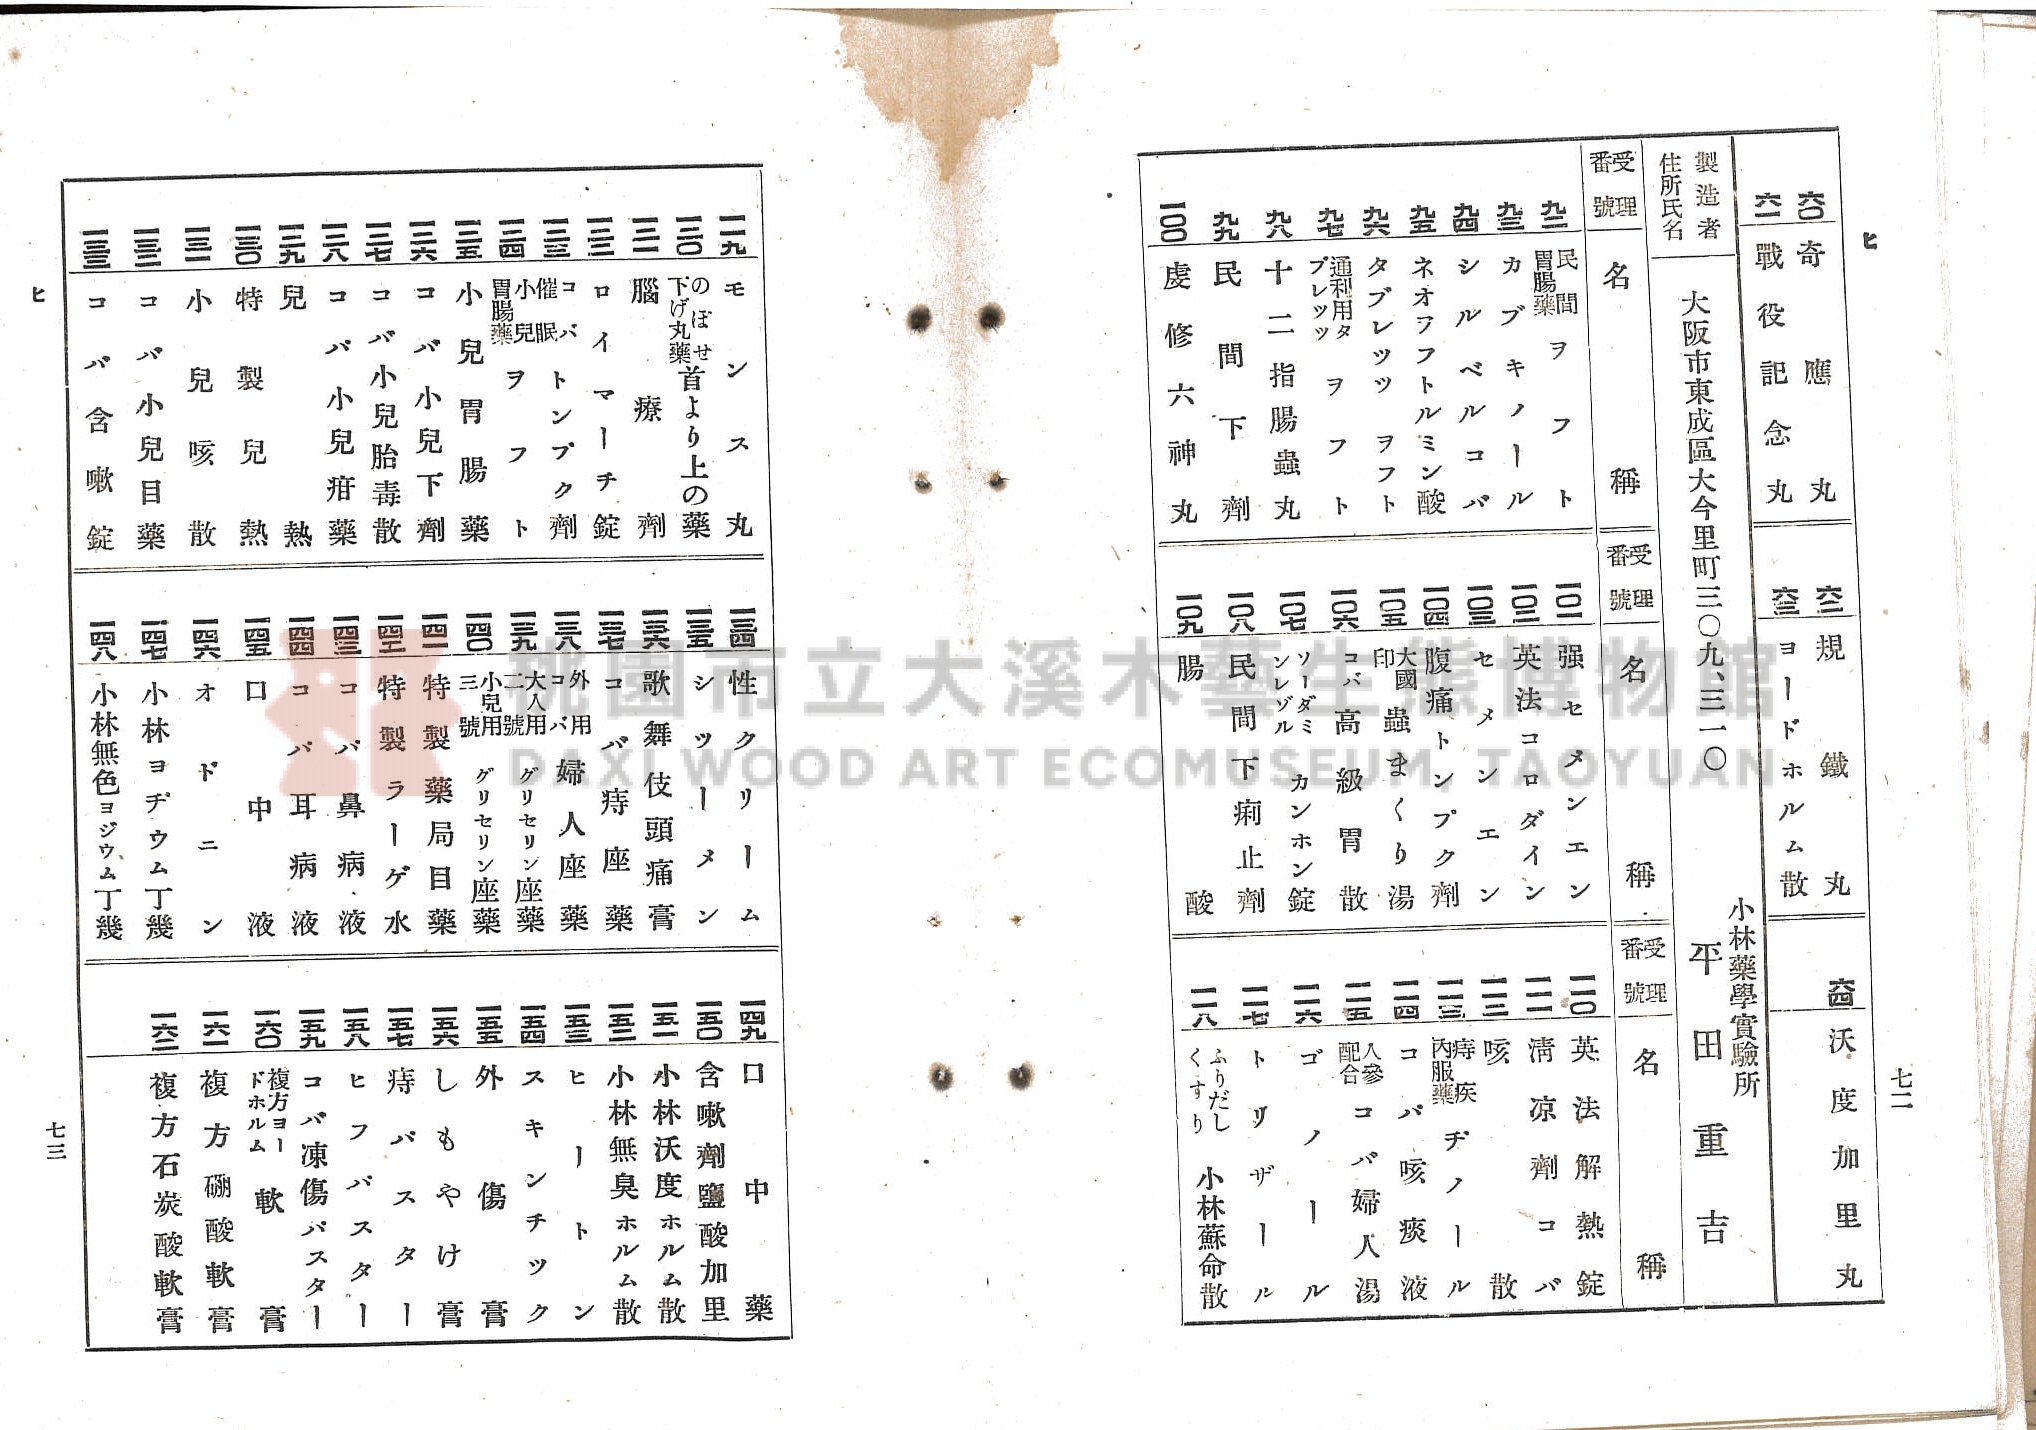 ヒ
七二
六〇 奇應丸
六一 戰役記念丸
六二 規鐵丸
六三 ヨードホルム散
六四 沃度加里丸
製造者住所氏名
大阪市東成區大今里町三〇九、三一〇
小林藥學實驗所
平田重吉
受理番號 名稱
受理番號 名稱
受理番號 名稱
九二 民間胃腸藥ヲフト
九三 カブキノール
九四 シルベルコバ
九五 ネオフフトルミン酸
九六 タブレツツヲフト
九七 通利用タブレツツヲフト
九八 十二指腸蟲丸
九九 民間下劑
一〇〇 虔修六神丸
一〇一 强セメンエン
一〇二 英法コロダイン
一〇三 セメンエン
一〇四 腹痛トンプク劑
一〇五 大國印蟲まくり湯
一〇六 コバ高級胃散
一〇七 ソーダミンレゾルカンホン錠
一〇八 民間下痢止劑
一〇九 腸酸
一一〇 英法解熱錠
一一一 淸凉劑コバ
一一二 咳散
一一三 痔疾內服藥ヂノール
一一四 コバ咳痰液
一一五 人參配合コバ婦人湯
一一六 ゴノール
一一七 トリザール
一一八 ふりだしくすり小林蘇命散
一一九 モンス丸
一二〇 のぼせ下げ丸藥首より上の藥
一二一 腦療劑
一二二 ロイマーチ錠
一二三 コバ催眠トンプク劑
一二四 小兒胃腸藥ヲフト
一二五 小兒胃腸藥
一二六 コバ小兒下劑
一二七 コバ小兒胎毒散
一二八 コバ小兒疳藥
一二九 兒熱
一三〇 特製兒熱
一三一 小兒咳散
一三二 コバ小兒目藥
一三三 コバ含嗽錠
一三四 性クリーム
一三五 シツーメン
一三六 歌舞伎頭痛膏
一三七 コバ痔座藥
一三八 外用コバ婦人座藥
一三九 大人用二號グリセリン座藥
一四〇 小兒用三號グリセリン座藥
一四一 特製藥局目藥
一四二 特製ラーゲ水
一四三 コバ鼻病液
一四四 コバ耳病液
一四五 口中液
一四六 オドニン
一四七 小林ヨヂウム丁幾
一四八 小林無色ヨジウム丁幾
一四九 口中藥
一五〇 含嗽劑鹽酸加里
一五一 小林沃度ホルム散
一五二 小林無臭ホルム散
一五三 ヒートン
一五四 スキンチツク
一五五 外傷膏
一五六 しもやけ膏
一五七 痔バスター
一五八 ヒフバスター
一五九 コバ凍傷バスター
一六〇 複方ヨードホルム軟膏
一六一 複方硼酸軟膏
一六二 複方石炭酸軟膏
ヒ
七三
桃園市立大溪木藝生態博物館
DAXI WOOD ART ECOMUSEUM, TAOYUAN